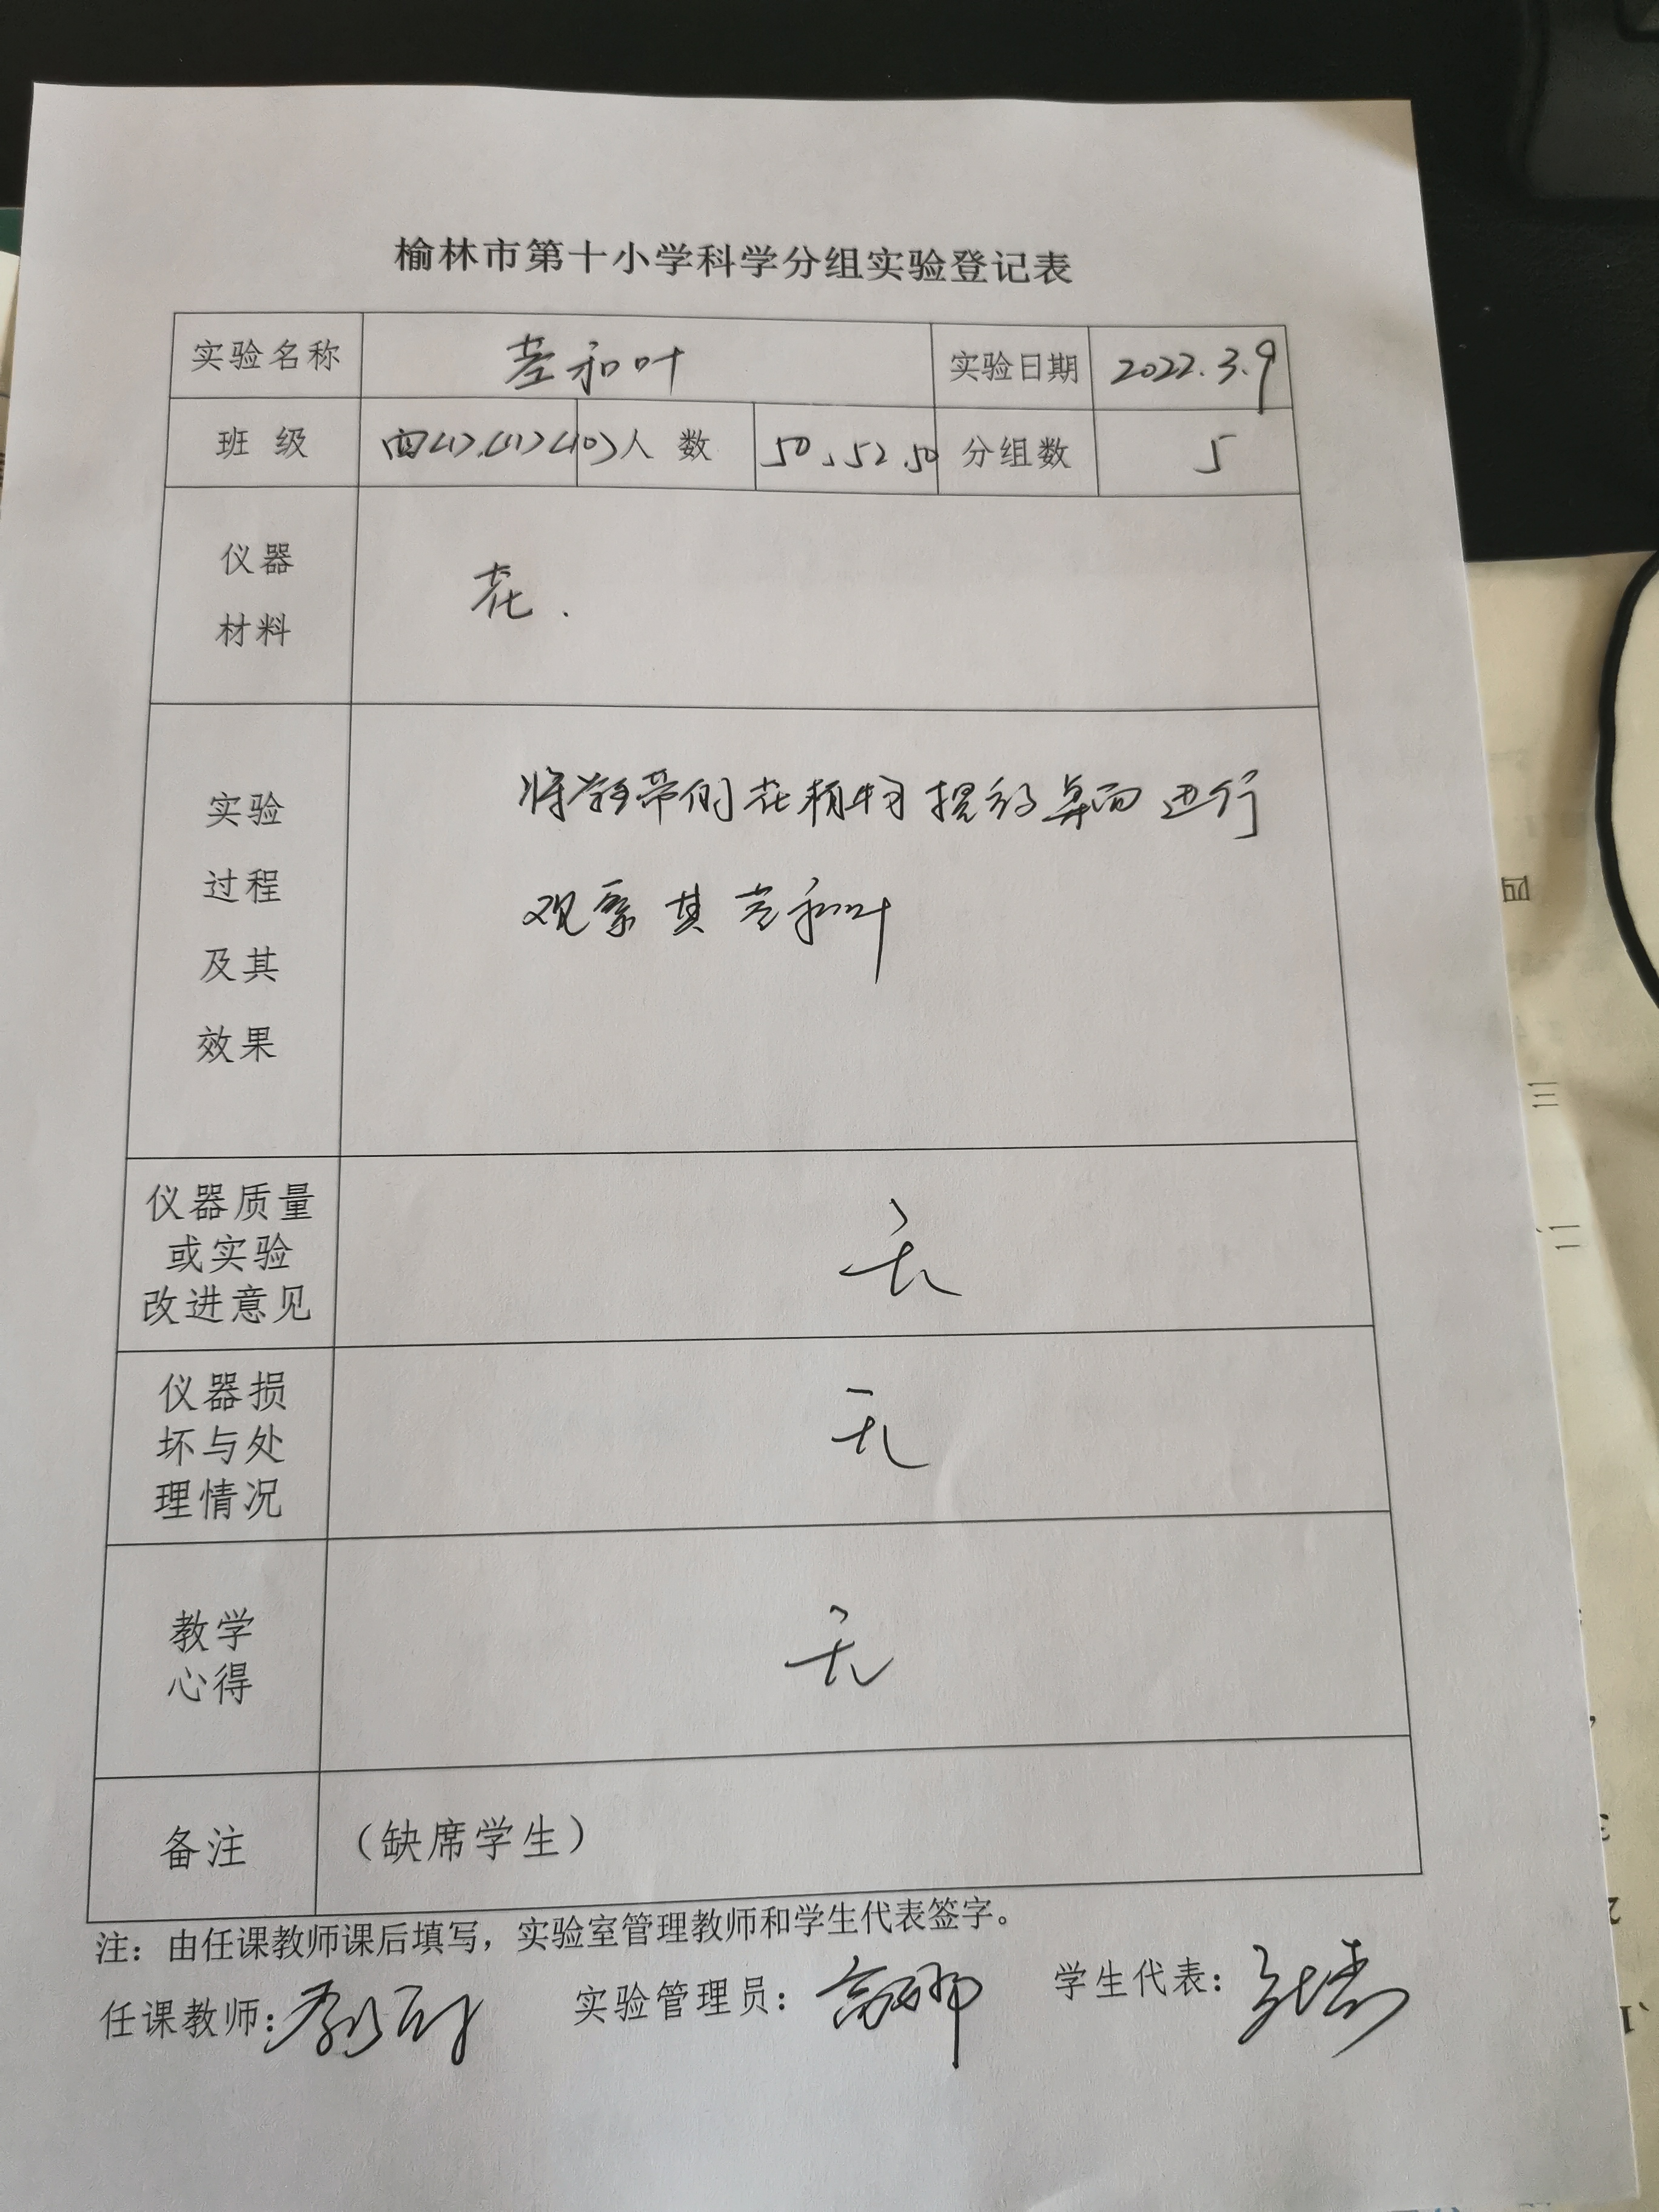 榆林市第十小学科学分组实验登记表
实验名称 茎和叶 实验日期 2022.3.9
班级 四<1>.<11><10> 人数 50、52.50 分组数 5
仪器
材料
花.
实验
过程
及其
效果
将学生带的花植物摆到桌面进行
观察其茎和叶
仪器质量
或实验
改进意见
无
仪器损
坏与处
理情况
无
教学
心得
无
备注 （缺席学生）
注：由任课教师课后填写，实验室管理教师和学生代表签字。
任课教师： 实验管理员： 学生代表：
四
三
二